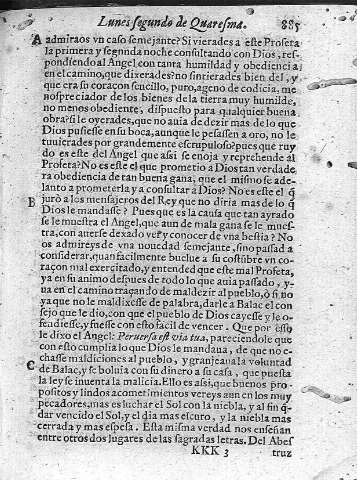 Lunes segundo de Quaresma. 885
A admiraos vn caso semejante? Si vierades a este Profeta
la primera y segunda noche consultando con Dios, res-
pondiendo al Angel con tanta humildad y obediencia
en el camino, que dixerades? no sintierades bien del, y
que era su coraçon sencillo, puro, ageno de codicia, me
nospreciador de los bienes de la tierra muy humilde,
no menos obediente, dispuesto para qualquier buena
obra? si le oyerades, que no auia de dezir mas de lo que
Dios pusiesse en su boca, aunque le pesassen a oro, no le
tuuierades por grandemente escrupuloso? pues que ruy
do es este del Angel que assi se enoja y reprehende al
Profeta? No es este el que prometio a Dios tan verdade
ra obediencia de tan buena gana, que el mismo se ade-
lanto a prometerla y a consultar a Dios? No es este el q̃
juró a los mensajeros del Rey que no diria mas de lo q̃
B Dios le mandasse? Pues que es la causa que tan ayrado
se le muestra el Angel, que aun de mala gana se le mues-
tra, con auerse dexado ver y conocer de vna bestia? No
os admireys de vna nouedad semejante, sino passad a
considerar, quan facilmente buelue a su costũbre vn co-
raçon mal exercitado, y entended que este mal Profeta,
ya en su animo despues de todo lo que auia passado, y-
ua en el camino traçando de maldezir al pueblo, ò si no
ya que no le maldixesse de palabra, darle a Balac el con
sejo que le dio, con que el pueblo de Dios cayesse y le o-
fendiesse, y fuesse con esto facil de vencer. Que por esso
le dixo el Angel: Peruersa est via tua, pareciendole que
con esto cumplia lo que Dios le mandaua, de que no e-
chasse maldiciones al pueblo, y granjeaua la voluntad
C de Balac, y se boluia con dinero a su casa, que puesta
la ley se inuenta la malicia. Ello es assi, que buenos pro-
positos y lindos acometimientos vereys aun en los muy
pecadores, mas es luchar el Sol con la niebla, y al fin q̃-
dar vencido el Sol, y el dia mas escuro, y la niebla mas
cerrada y mas espesa. Esta misma verdad nos enseñan
entre otros dos lugares de las sagradas letras. Del Abes
KKK 3 truz